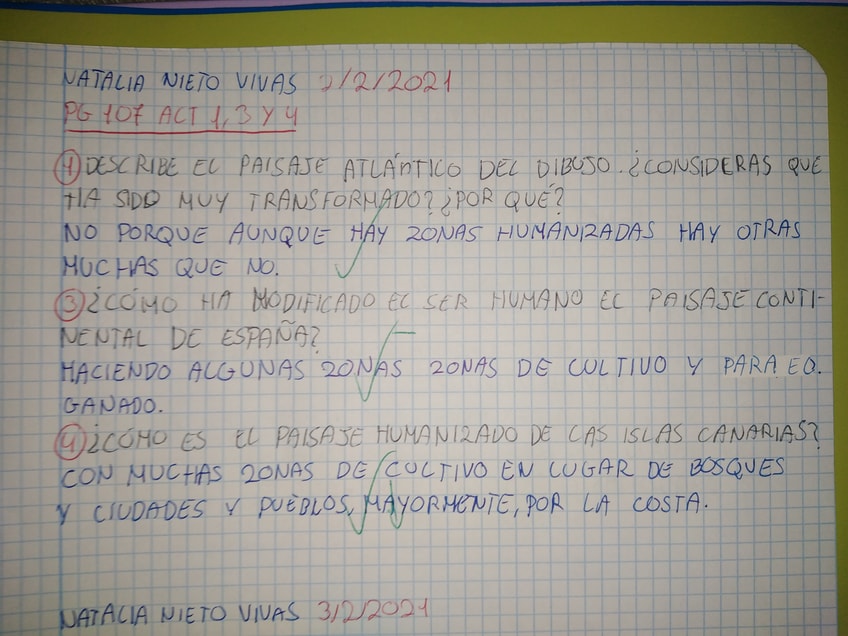 NATALIA NIETO VIVAS 2/2/2021
PG 107 ACT 1, 3 Y 4
1 DESCRIBE EL PAISAJE ATLÁNTICO DEL DIBUJO. ¿CONSIDERAS QUE
HA SIDO MUY TRANSFORMADO? ¿POR QUÉ?
NO PORQUE AUNQUE HAY ZONAS HUMANIZADAS HAY OTRAS
MUCHAS QUE NO.
3 ¿CÓMO HA MODIFICADO EL SER HUMANO EL PAISAJE CONTI-
NENTAL DE ESPAÑA?
HACIENDO ALGUNAS ZONAS ZONAS DE CULTIVO Y PARA EL
GANADO.
4 ¿CÓMO ES EL PAISAJE HUMANIZADO DE LAS ISLAS CANARIAS?
CON MUCHAS ZONAS DE CULTIVO EN LUGAR DE BOSQUES
Y CIUDADES Y PUEBLOS, MAYORMENTE, POR LA COSTA.
NATALIA NIETO VIVAS 3/2/2021